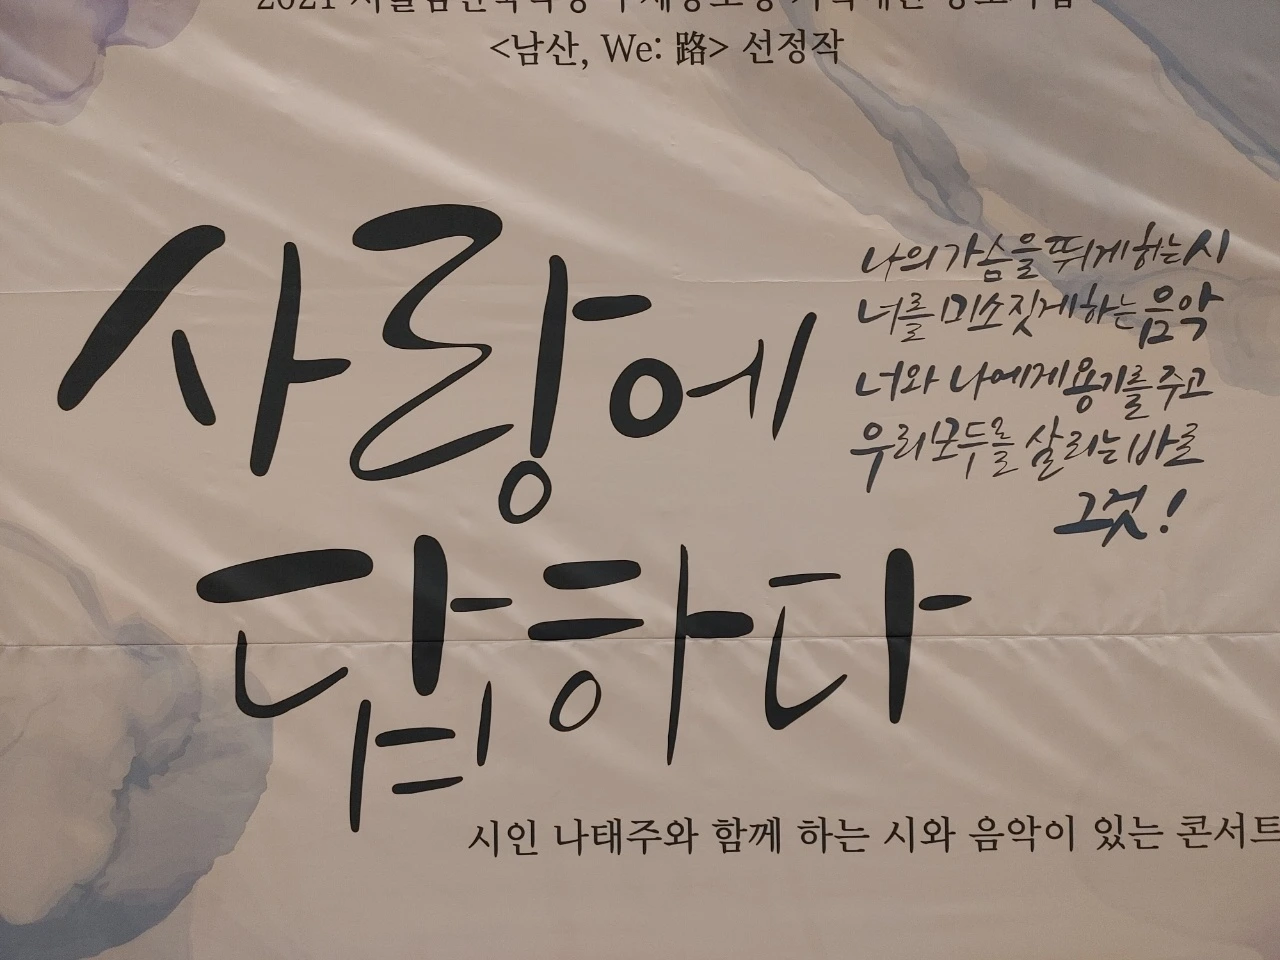 2021
<남산, We: 路> 선정작
사랑에
답하다
나의 가슴을 뛰게 하는 시
너를 미소짓게 하는 음악
너와 나에게 용기를 주고
우리 모두를 살리는 바로
그것!
시인 나태주와 함께 하는 시와 음악이 있는 콘서트